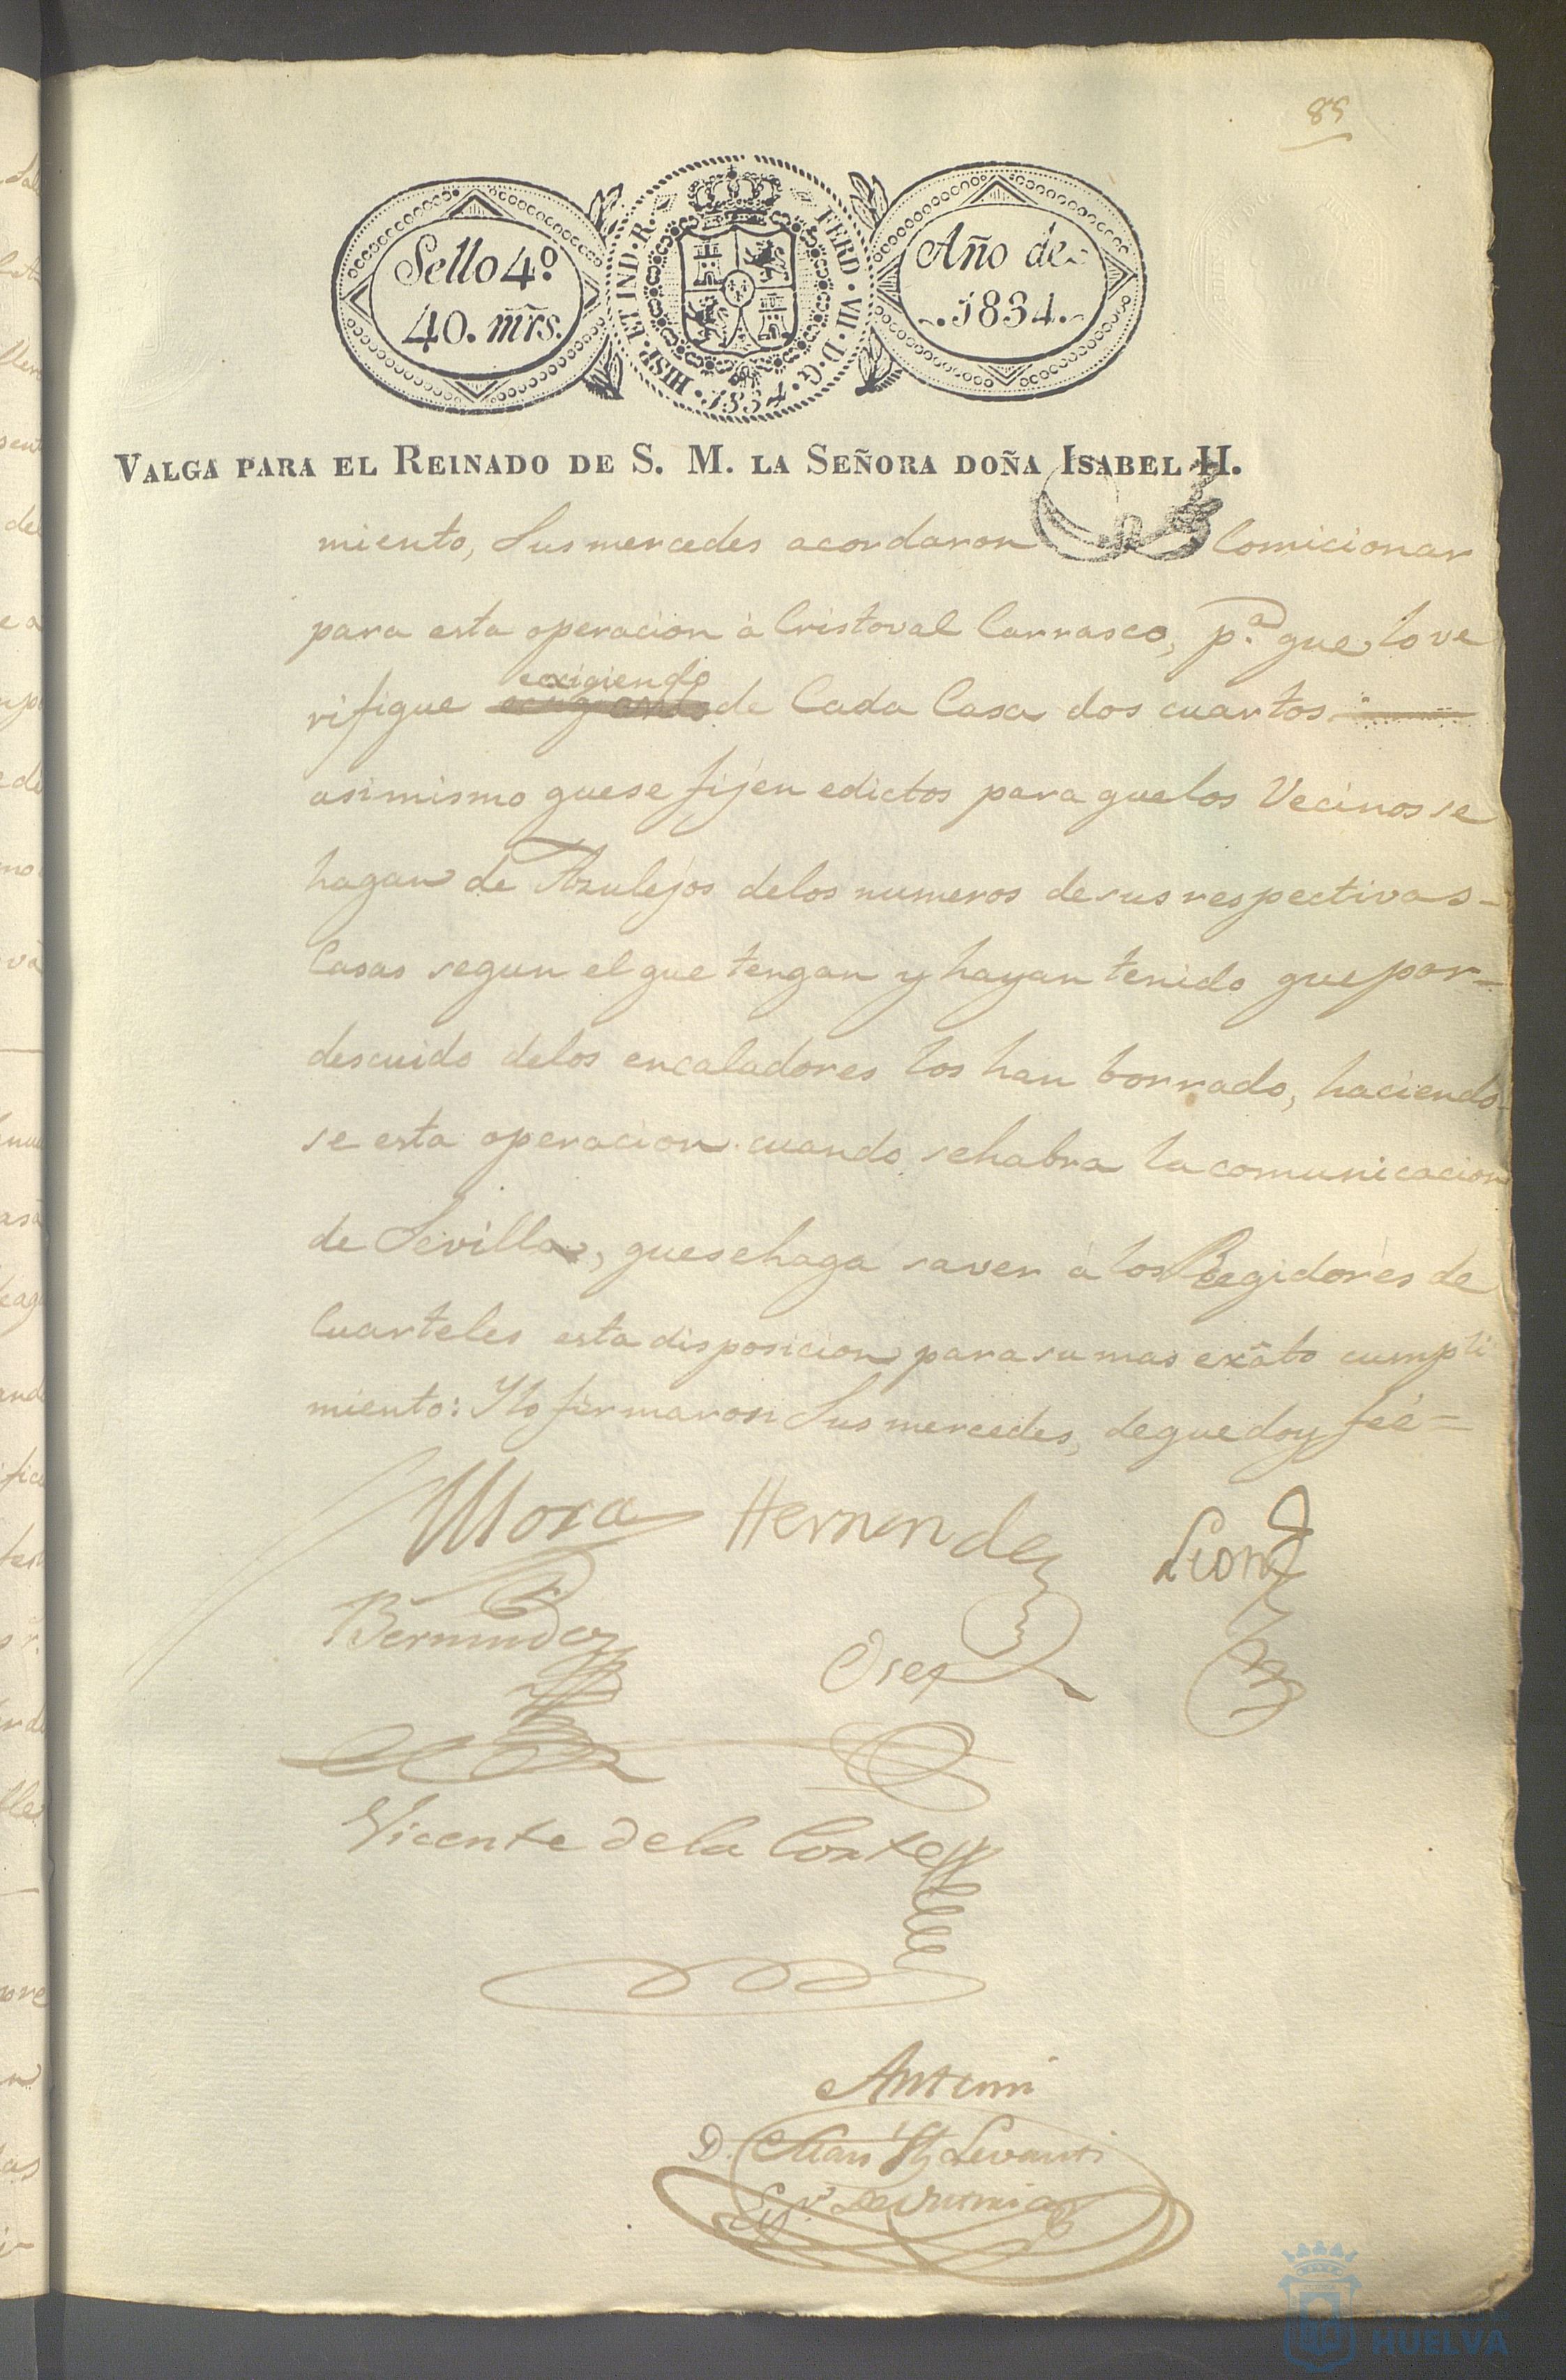 85
Sello 4º
40. mrs.
HISP. ET IND. R. FERD. VII. D. G. 1834.
Año de
1834.
VALGA PARA EL REINADO DE S. M. LA SEÑORA DOÑA ISABEL II.
miento, Sus mercedes acordaron Comicionar
para esta operacion à Cristoval Carrasco, p.ª que lo ve
exigiendo
rifique de Cada Casa dos cuartos
asimismo que se fijen edictos para que los Vecinos se
hagan de Azulejos delos numeros de sus respectivas
Casas segun el que tengan y hayan tenido que por
descuido delos encaladores los han borrado, haciendo
se esta operacion cuando sehabra la comunicacion
de Sevilla, quesehaga saver à los Regidores de
Cuarteles esta disposicion para su mas exâto cumpli
miento: Y lo firmaron Sus mercedes, de que doy feé =
Mora Hernandez Leon
Bermudez
Vicente de la Corte
Antemi
D.
HUELVA